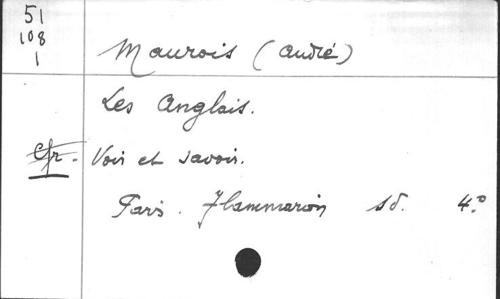 51
108
1
Maurois (André)
Les Anglais.
Cfr. Voir et savoir.
Paris. Flammarion sd. 4.°